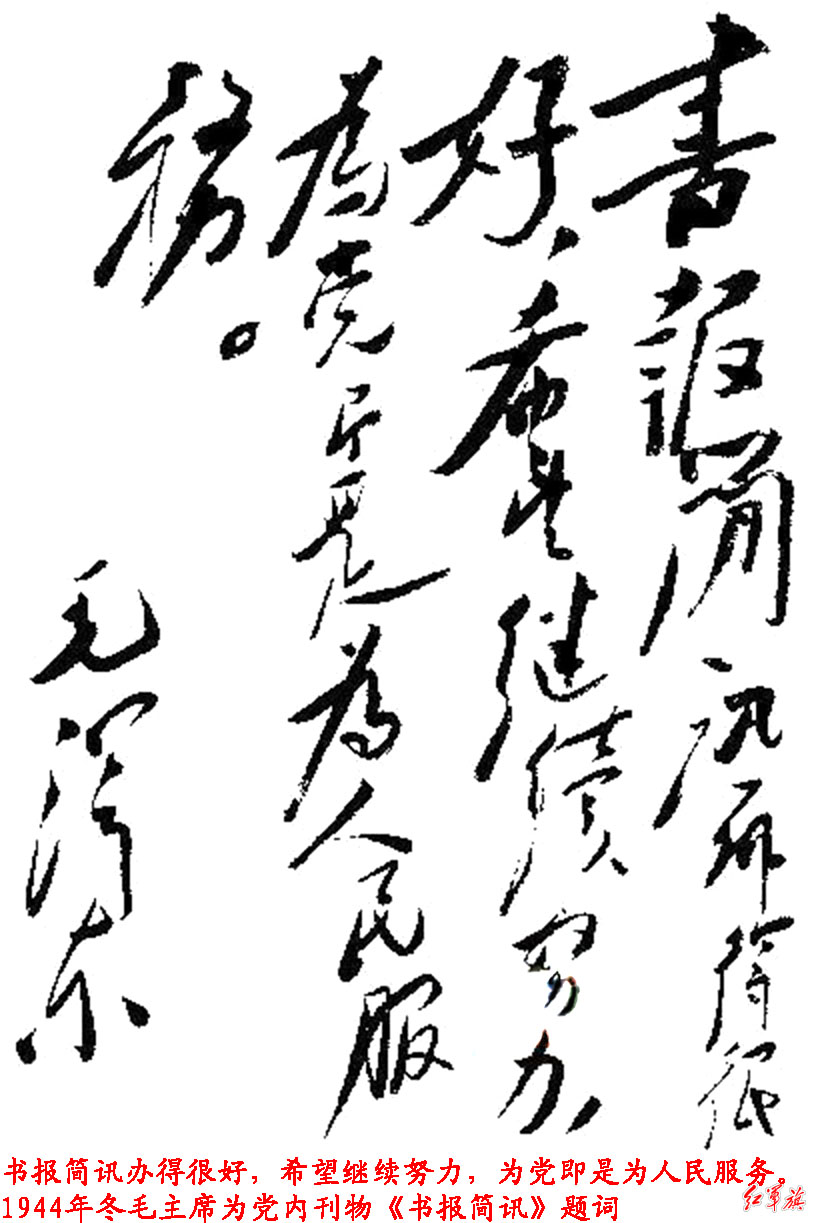 書报简讯办得很
好，希望继续努力，
为党即是为人民服
务。
毛泽东
书报简讯办得很好，希望继续努力，为党即是为人民服务。
1944年冬毛主席为党内刊物《书报简讯》题词
红军旗